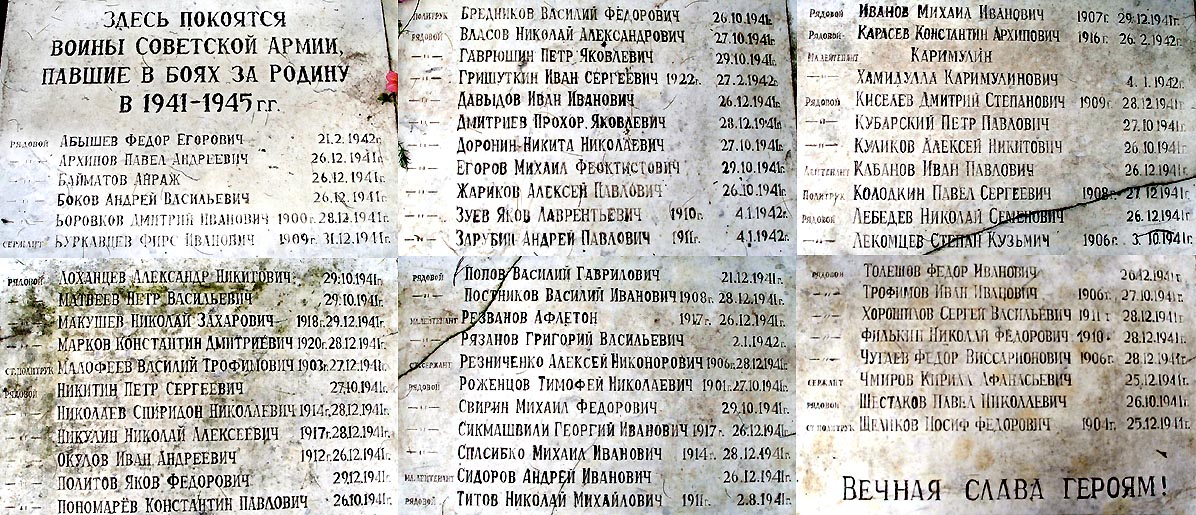 ЗДЕСЬ ПОКОЯТСЯ
ВОИНЫ СОВЕТСКОЙ АРМИИ,
ПАВШИЕ В БОЯХ ЗА РОДИНУ
В 1941-1945 г.г.
РЯДОВОЙ АБЫШЕВ ФЕДОР ЕГОРОВИЧ 21.2.1942г.
—"— АРХИПОВ ПАВЕЛ АНДРЕЕВИЧ 26.12.1941г.
—"— БАЙМАТОВ АЙРАЖ 26.12.1941г.
—"— БОКОВ АНДРЕЙ ВАСИЛЬЕВИЧ 26.12.1941г.
—"— БОРОВКОВ ДМИТРИЙ ИВАНОВИЧ 1900г. 28.12.1941г.
СЕРЖАНТ БУРКАВЦЕВ ФИРС ИВАНОВИЧ 1909г. 31.12.1941г.
ПОЛИТРУК БРЕДНИКОВ ВАСИЛИЙ ФЁДОРОВИЧ 26.10.1941г.
РЯДОВОЙ ВЛАСОВ НИКОЛАЙ АЛЕКСАНДРОВИЧ 27.10.1941г.
—"— ГАВРЮШИН ПЕТР ЯКОВЛЕВИЧ 29.10.1941г.
—"— ГРИШУТКИН ИВАН СЕРГЕЕВИЧ 1922г. 27.2.1942г.
—"— ДАВЫДОВ ИВАН ИВАНОВИЧ 26.12.1941г.
—"— ДМИТРИЕВ ПРОХОР ЯКОВЛЕВИЧ 28.12.1941г.
—"— ДОРОНИН НИКИТА НИКОЛАЕВИЧ 27.10.1941г.
—"— ЕГОРОВ МИХАИЛ ФЕОКТИСТОВИЧ 29.10.1941г.
—"— ЖАРИКОВ АЛЕКСЕЙ ПАВЛОВИЧ 26.10.1941г.
—"— ЗУЕВ ЯКОВ ЛАВРЕНТЬЕВИЧ 1910г. 4.1.1942г.
—"— ЗАРУБИН АНДРЕЙ ПАВЛОВИЧ 1911г. 4.1.1942г.
РЯДОВОЙ ИВАНОВ МИХАИЛ ИВАНОВИЧ 1907г. 29.12.1941г.
РЯДОВОЙ КАРАСЕВ КОНСТАНТИН АРХИПОВИЧ 1916г. 26.2.1942г.
МЛ.ЛЕЙТЕНАНТ КАРИМУЛИН
ХАМИДУЛЛА КАРИМУЛИНОВИЧ 4.1.1942г.
РЯДОВОЙ КИСЕЛЕВ ДМИТРИЙ СТЕПАНОВИЧ 1909г. 28.12.1941г.
—"— КУБАРСКИЙ ПЕТР ПАВЛОВИЧ 27.10.1941г.
—"— КУЛИКОВ АЛЕКСЕЙ НИКИТОВИЧ 26.10.1941г.
ЛЕЙТЕНАНТ КАБАНОВ ИВАН ПАВЛОВИЧ 26.12.1941г.
ПОЛИТРУК КОЛОДКИН ПАВЕЛ СЕРГЕЕВИЧ 1908г. 27.12.1941г.
РЯДОВОЙ ЛЕБЕДЕВ НИКОЛАЙ СЕМЕНОВИЧ 26.12.1941г.
—"— ЛЕКОМЦЕВ СТЕПАН КУЗЬМИЧ 1906г. 3.10.1941г.
РЯДОВОЙ ЛОХАНЦЕВ АЛЕКСАНДР НИКИТОВИЧ 29.10.1941г.
—"— МАТВЕЕВ ПЕТР ВАСИЛЬЕВИЧ 29.10.1941г.
—"— МАКУШЕВ НИКОЛАЙ ЗАХАРОВИЧ 1918г. 29.12.1941г.
—"— МАРКОВ КОНСТАНТИН ДМИТРИЕВИЧ 1920г. 28.12.1941г.
СТ.ПОЛИТРУК МАЛОФЕЕВ ВАСИЛИЙ ТРОФИМОВИЧ 1903г. 27.12.1941г.
РЯДОВОЙ НИКИТИН ПЕТР СЕРГЕЕВИЧ 27.10.1941г.
—"— НИКОЛАЕВ СПИРИДОН НИКОЛАЕВИЧ 1914г. 28.12.1941г.
—"— НИКУЛИН НИКОЛАЙ АЛЕКСЕЕВИЧ 1917г. 28.12.1941г.
—"— ОКУЛОВ ИВАН АНДРЕЕВИЧ 1912г. 26.12.1941г.
—"— ПОЛИТОВ ЯКОВ ФЕДОРОВИЧ 29.12.1941г.
—"— ПОНОМАРЁВ КОНСТАНТИН ПАВЛОВИЧ 26.10.1941г.
РЯДОВОЙ ПОПОВ ВАСИЛИЙ ГАВРИЛОВИЧ 21.12.1941г.
—"— ПОСТНИКОВ ВАСИЛИЙ ИВАНОВИЧ 1908г. 28.12.1941г.
МЛ.ЛЕЙТЕНАНТ РЕЗВАНОВ АФЛЕТОН 1917г. 26.12.1941г.
—"— РЯЗАНОВ ГРИГОРИЙ ВАСИЛЬЕВИЧ 2.1.1942г.
СТ.СЕРЖАНТ РЕЗНИЧЕНКО АЛЕКСЕЙ НИКОНОРОВИЧ 1906г. 28.12.1941г.
РЯДОВОЙ РОЖЕНЦОВ ТИМОФЕЙ НИКОЛАЕВИЧ 1901г. 27.10.1941г.
—"— СВИРИН МИХАИЛ ФЕДОРОВИЧ 29.10.1941г.
—"— СИКМАШВИЛИ ГЕОРГИЙ ИВАНОВИЧ 1917г. 26.12.1941г.
—"— СПАСИБКО МИХАИЛ ИВАНОВИЧ 1914г. 28.12.1941г.
МЛ.ЛЕЙТЕНАНТ СИДОРОВ АНДРЕЙ ИВАНОВИЧ 26.12.1941г.
РЯДОВОЙ ТИТОВ НИКОЛАЙ МИХАЙЛОВИЧ 1911г. 2.8.1941г.
РЯДОВОЙ ТОЛЕШОВ ФЕДОР ИВАНОВИЧ 26.12.1941г.
—"— ТРОФИМОВ ИВАН ИВАНОВИЧ 1906г. 27.10.1941г.
—"— ХОРОШИЛОВ СЕРГЕЙ ВАСИЛЬЕВИЧ 1911г. 28.12.1941г.
—"— ФИЛЬКИН НИКОЛАЙ ФЕДОРОВИЧ 1910г. 28.12.1941г.
—"— ЧУГАЕВ ФЕДОР ВИССАРИОНОВИЧ 1906г. 28.12.1941г.
СЕРЖАНТ ЧМИРОВ КИРИЛЛ АФАНАСЬЕВИЧ 25.12.1941г.
РЯДОВОЙ ШЕСТАКОВ ПАВЕЛ НИКОЛАЕВИЧ 26.10.1941г.
СТ.ПОЛИТРУК ЩЕЛИКОВ ИОСИФ ФЕДОРОВИЧ 1904г. 25.12.1941г.
ВЕЧНАЯ СЛАВА ГЕРОЯМ!